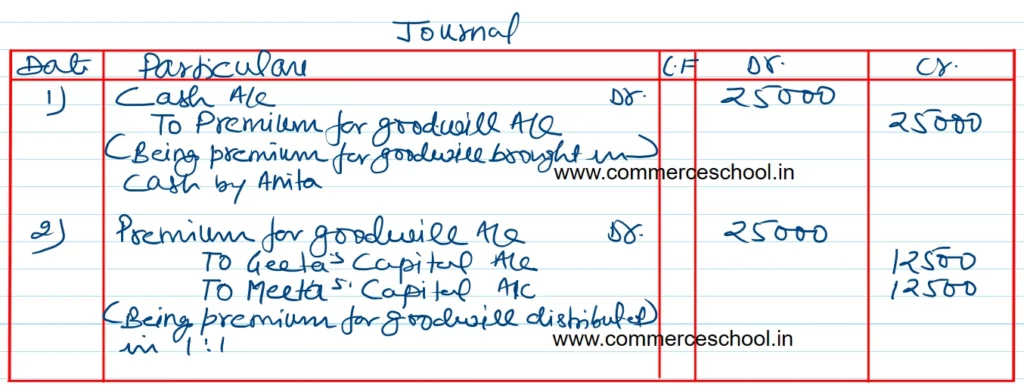 Journal
Date Particulars C.F Dr. Cr.
1) Cash A/c Dr. 25000
To Premium for goodwill A/c 25000
(Being premium for goodwill brought in)
Cash by Anita
www.commerceschool.in
2) Premium for goodwill A/c Dr. 25000
To Geeta's Capital A/c 12500
To Meeta's Capital A/c 12500
(Being premium for goodwill distributed)
in 1:1
www.commerceschool.in